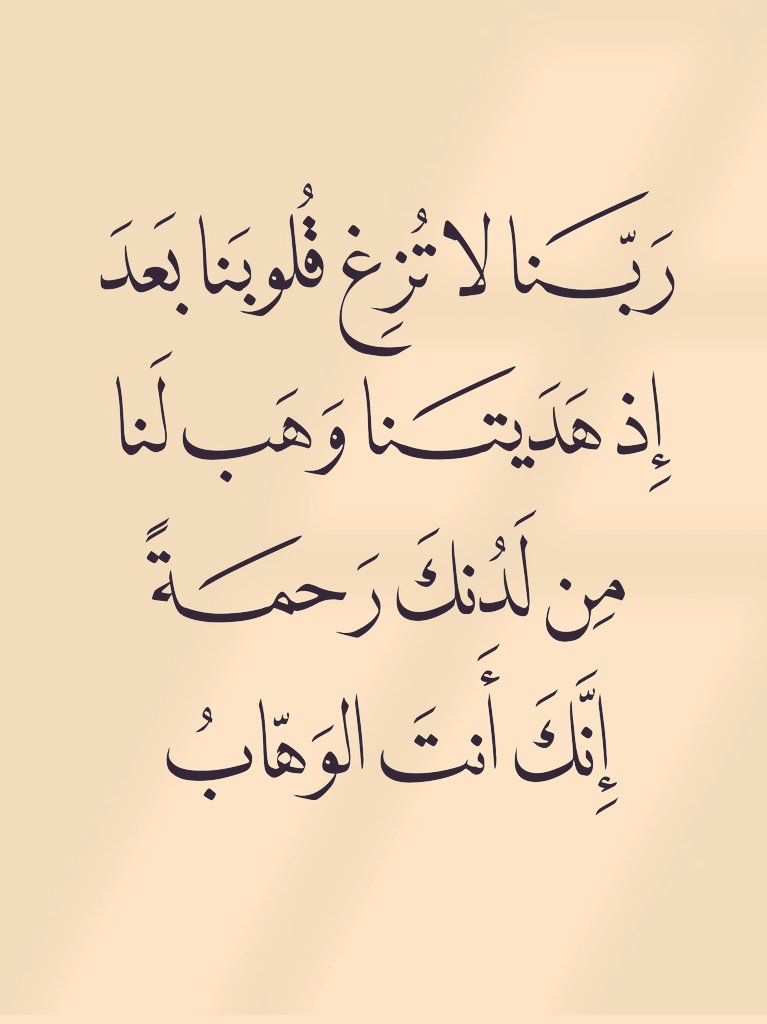 رَبَّنا لا تُزِغ قُلوبَنا بَعدَ
إِذ هَدَيتَنا وَهَب لَنا
مِن لَدُنكَ رَحمَةً
إِنَّكَ أَنتَ الوَهّابُ